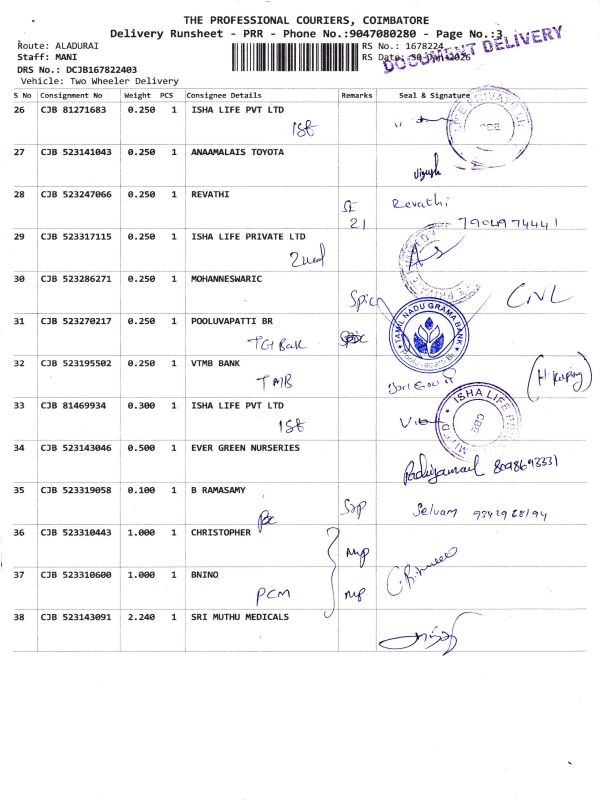 THE PROFESSIONAL COURIERS, COIMBATORE
Delivery Runsheet - PRR - Phone No.:9047080280 - Page No.:3
DOCUMENT DELIVERY
Route: ALADURAI RS No.: 1678224
Staff: MANI RS Date: 30-Jan-2026
DRS No.: DCJB167822403
Vehicle: Two Wheeler Delivery
S No Consignment No Weight PCS Consignee Details Remarks Seal & Signature
26 CJB 81271683 0.250 1 ISHA LIFE PVT LTD
CBE
27 CJB 523141043 0.250 1 ANAAMALAIS TOYOTA
28 CJB 523247066 0.250 1 REVATHI Revathi
21 7904974441
29 CJB 523317115 0.250 1 ISHA LIFE PRIVATE LTD
30 CJB 523286271 0.250 1 MOHANNESWARIC
31 CJB 523270217 0.250 1 POOLUVAPATTI BR TAMIL NADU GRAMA BANK
Pooluvapatti Br
32 CJB 523195502 0.250 1 VTMB BANK
TMB
33 CJB 81469934 0.300 1 ISHA LIFE PVT LTD ISHA LIFE
CBE
34 CJB 523143046 0.500 1 EVER GREEN NURSERIES
35 CJB 523319058 0.100 1 B RAMASAMY Selvam
36 CJB 523310443 1.000 1 CHRISTOPHER
37 CJB 523310600 1.000 1 BNINO
PCM
38 CJB 523143091 2.240 1 SRI MUTHU MEDICALS